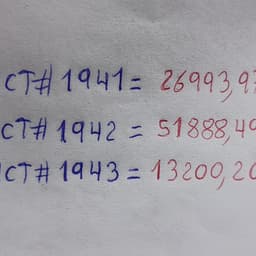 CT# 1941 = 26993,97
CT# 1942 = 51888,49
CT# 1943 = 13200,20